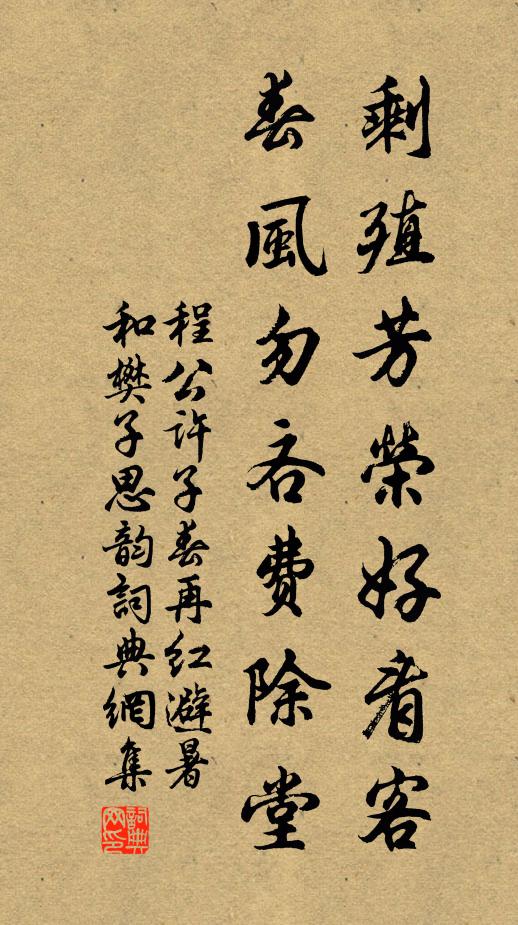 剩殖芳榮好看客
春風勿吝費除堂
程公許子春再紅避暑
和樊子思韵詞典網集
詞典网印